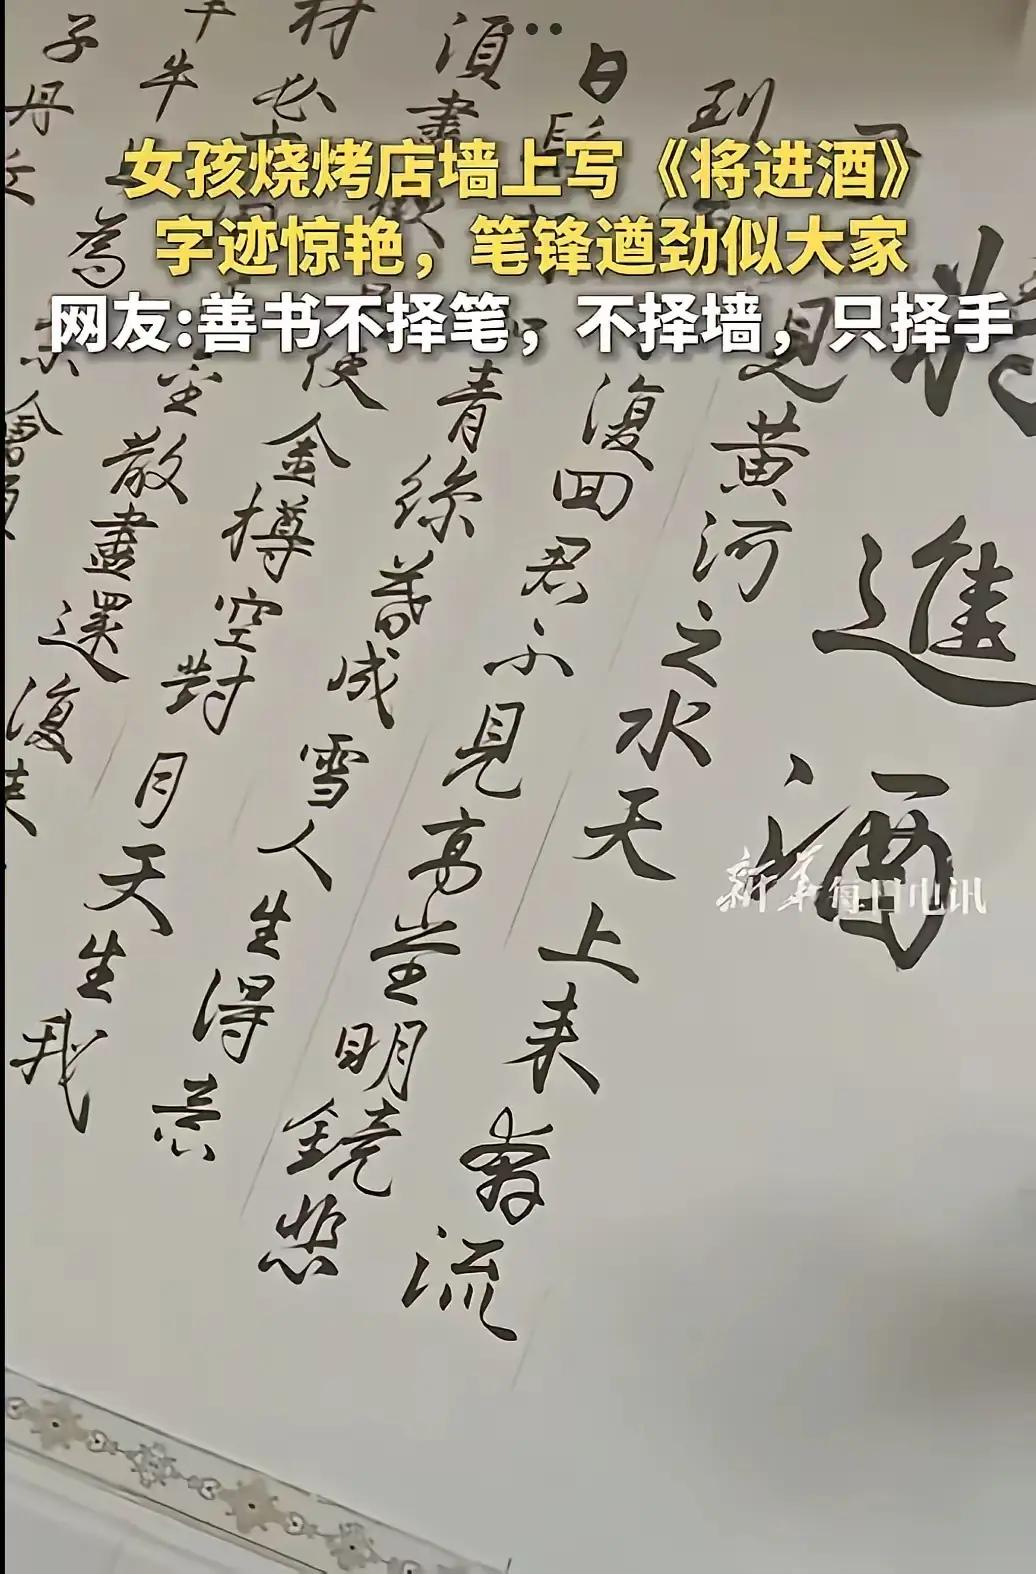 女孩烧烤店墙上写《将进酒》
字迹惊艳，笔锋遒劲似大家
网友:善书不择笔，不择墙，只择手
新华每日电讯
將進酒
見黄河之水天上来奔流
到復回君不見高堂明鏡悲
白髮青絲暮成雪人生得意
須盡歡使金樽空對月天生我
材必散盡還復来
牛為會須
子丹